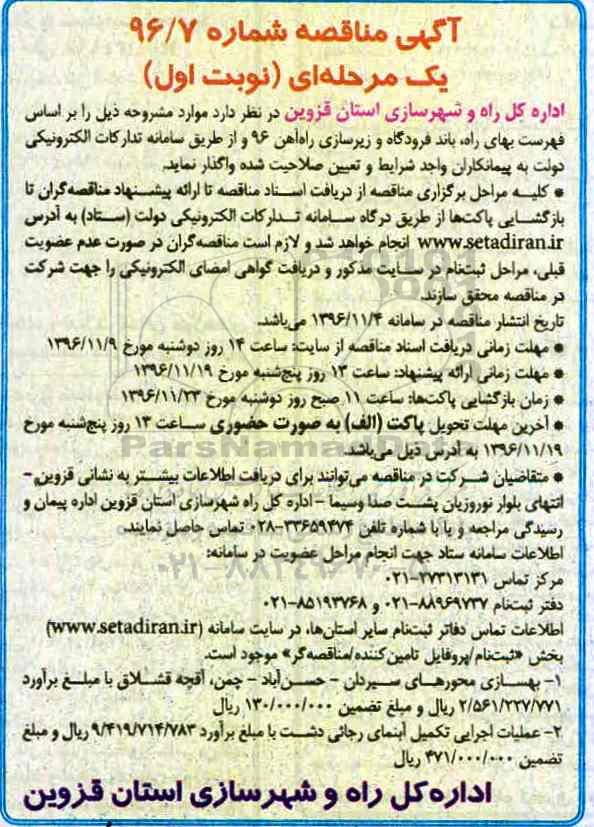 آگهی مناقصه شماره ۹۶/۷
یک مرحله‌ای (نوبت اول)
اداره کل راه و شهرسازی استان قزوین در نظر دارد موارد مشروحه ذیل را بر اساس
فهرست بهای راه، باند فرودگاه و زیرسازی راه‌آهن ۹۶ و از طریق سامانه تدارکات الکترونیکی
دولت به پیمانکاران واجد شرایط و تعیین صلاحیت شده واگذار نماید.
* کلیه مراحل برگزاری مناقصه از دریافت اسناد مناقصه تا ارائه پیشنهاد مناقصه‌گران تا
بازگشایی پاکت‌ها از طریق درگاه سامانه تدارکات الکترونیکی دولت (ستاد) به آدرس
www.setadiran.ir انجام خواهد شد و لازم است مناقصه‌گران در صورت عدم عضویت
قبلی، مراحل ثبت‌نام در سایت مذکور و دریافت گواهی امضای الکترونیکی را جهت شرکت
در مناقصه محقق سازند.
تاریخ انتشار مناقصه در سامانه ۱۳۹۶/۱۱/۴ می‌باشد.
* مهلت زمانی دریافت اسناد مناقصه از سایت: ساعت ۱۴ روز دوشنبه مورخ ۱۳۹۶/۱۱/۹
* مهلت زمانی ارائه پیشنهاد: ساعت ۱۳ روز پنج‌شنبه مورخ ۱۳۹۶/۱۱/۱۹
* زمان بازگشایی پاکت‌ها: ساعت ۱۱ صبح روز دوشنبه مورخ ۱۳۹۶/۱۱/۲۳
* آخرین مهلت تحویل پاکت (الف) به صورت حضوری ساعت ۱۳ روز پنج‌شنبه مورخ
۱۳۹۶/۱۱/۱۹ به آدرس ذیل می‌باشد.
ParsNamadData
* متقاضیان شرکت در مناقصه می‌توانند برای دریافت اطلاعات بیشتر به نشانی قزوین-
انتهای بلوار نوروزیان پشت صدا وسیما - اداره کل راه شهرسازی استان قزوین اداره پیمان و
رسیدگی مراجعه و یا با شماره تلفن ۳۳۶۵۹۴۷۴-۰۲۸ تماس حاصل نمایند.
اطلاعات سامانه ستاد جهت انجام مراحل عضویت در سامانه:
مرکز تماس ۲۷۳۱۳۱۳۱-۰۲۱
دفتر ثبت‌نام ۸۸۹۶۹۷۳۷-۰۲۱ و ۸۵۱۹۳۷۶۸-۰۲۱
اطلاعات تماس دفاتر ثبت‌نام سایر استان‌ها، در سایت سامانه (www.setadiran.ir)
بخش «ثبت‌نام/پروفایل تامین‌کننده/مناقصه‌گر» موجود است.
۱- بهسازی محورهای سیردان - حسن‌آباد - چمن، آقچه قشلاق با مبلغ برآورد
۲/۵۶۱/۲۲۷/۷۷۱ ریال و مبلغ تضمین ۱۳۰/۰۰۰/۰۰۰ ریال
۲- عملیات اجرایی تکمیل آبنمای رجائی دشت با مبلغ برآورد ۹/۴۱۹/۷۱۴/۷۸۳ ریال و مبلغ
تضمین ۴۷۱/۰۰۰/۰۰۰ ریال
اداره‌کل راه و شهرسازی استان قزوین